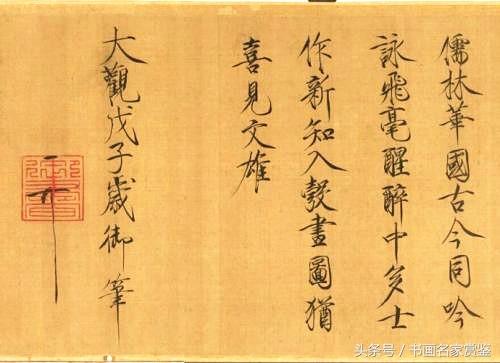 儒林華國古今同吟
詠飛毫醒醉中多士
作新知入彀畫圖猶
喜見文雄
大觀戊子歲御筆
头条号 / 书画名家赏鉴